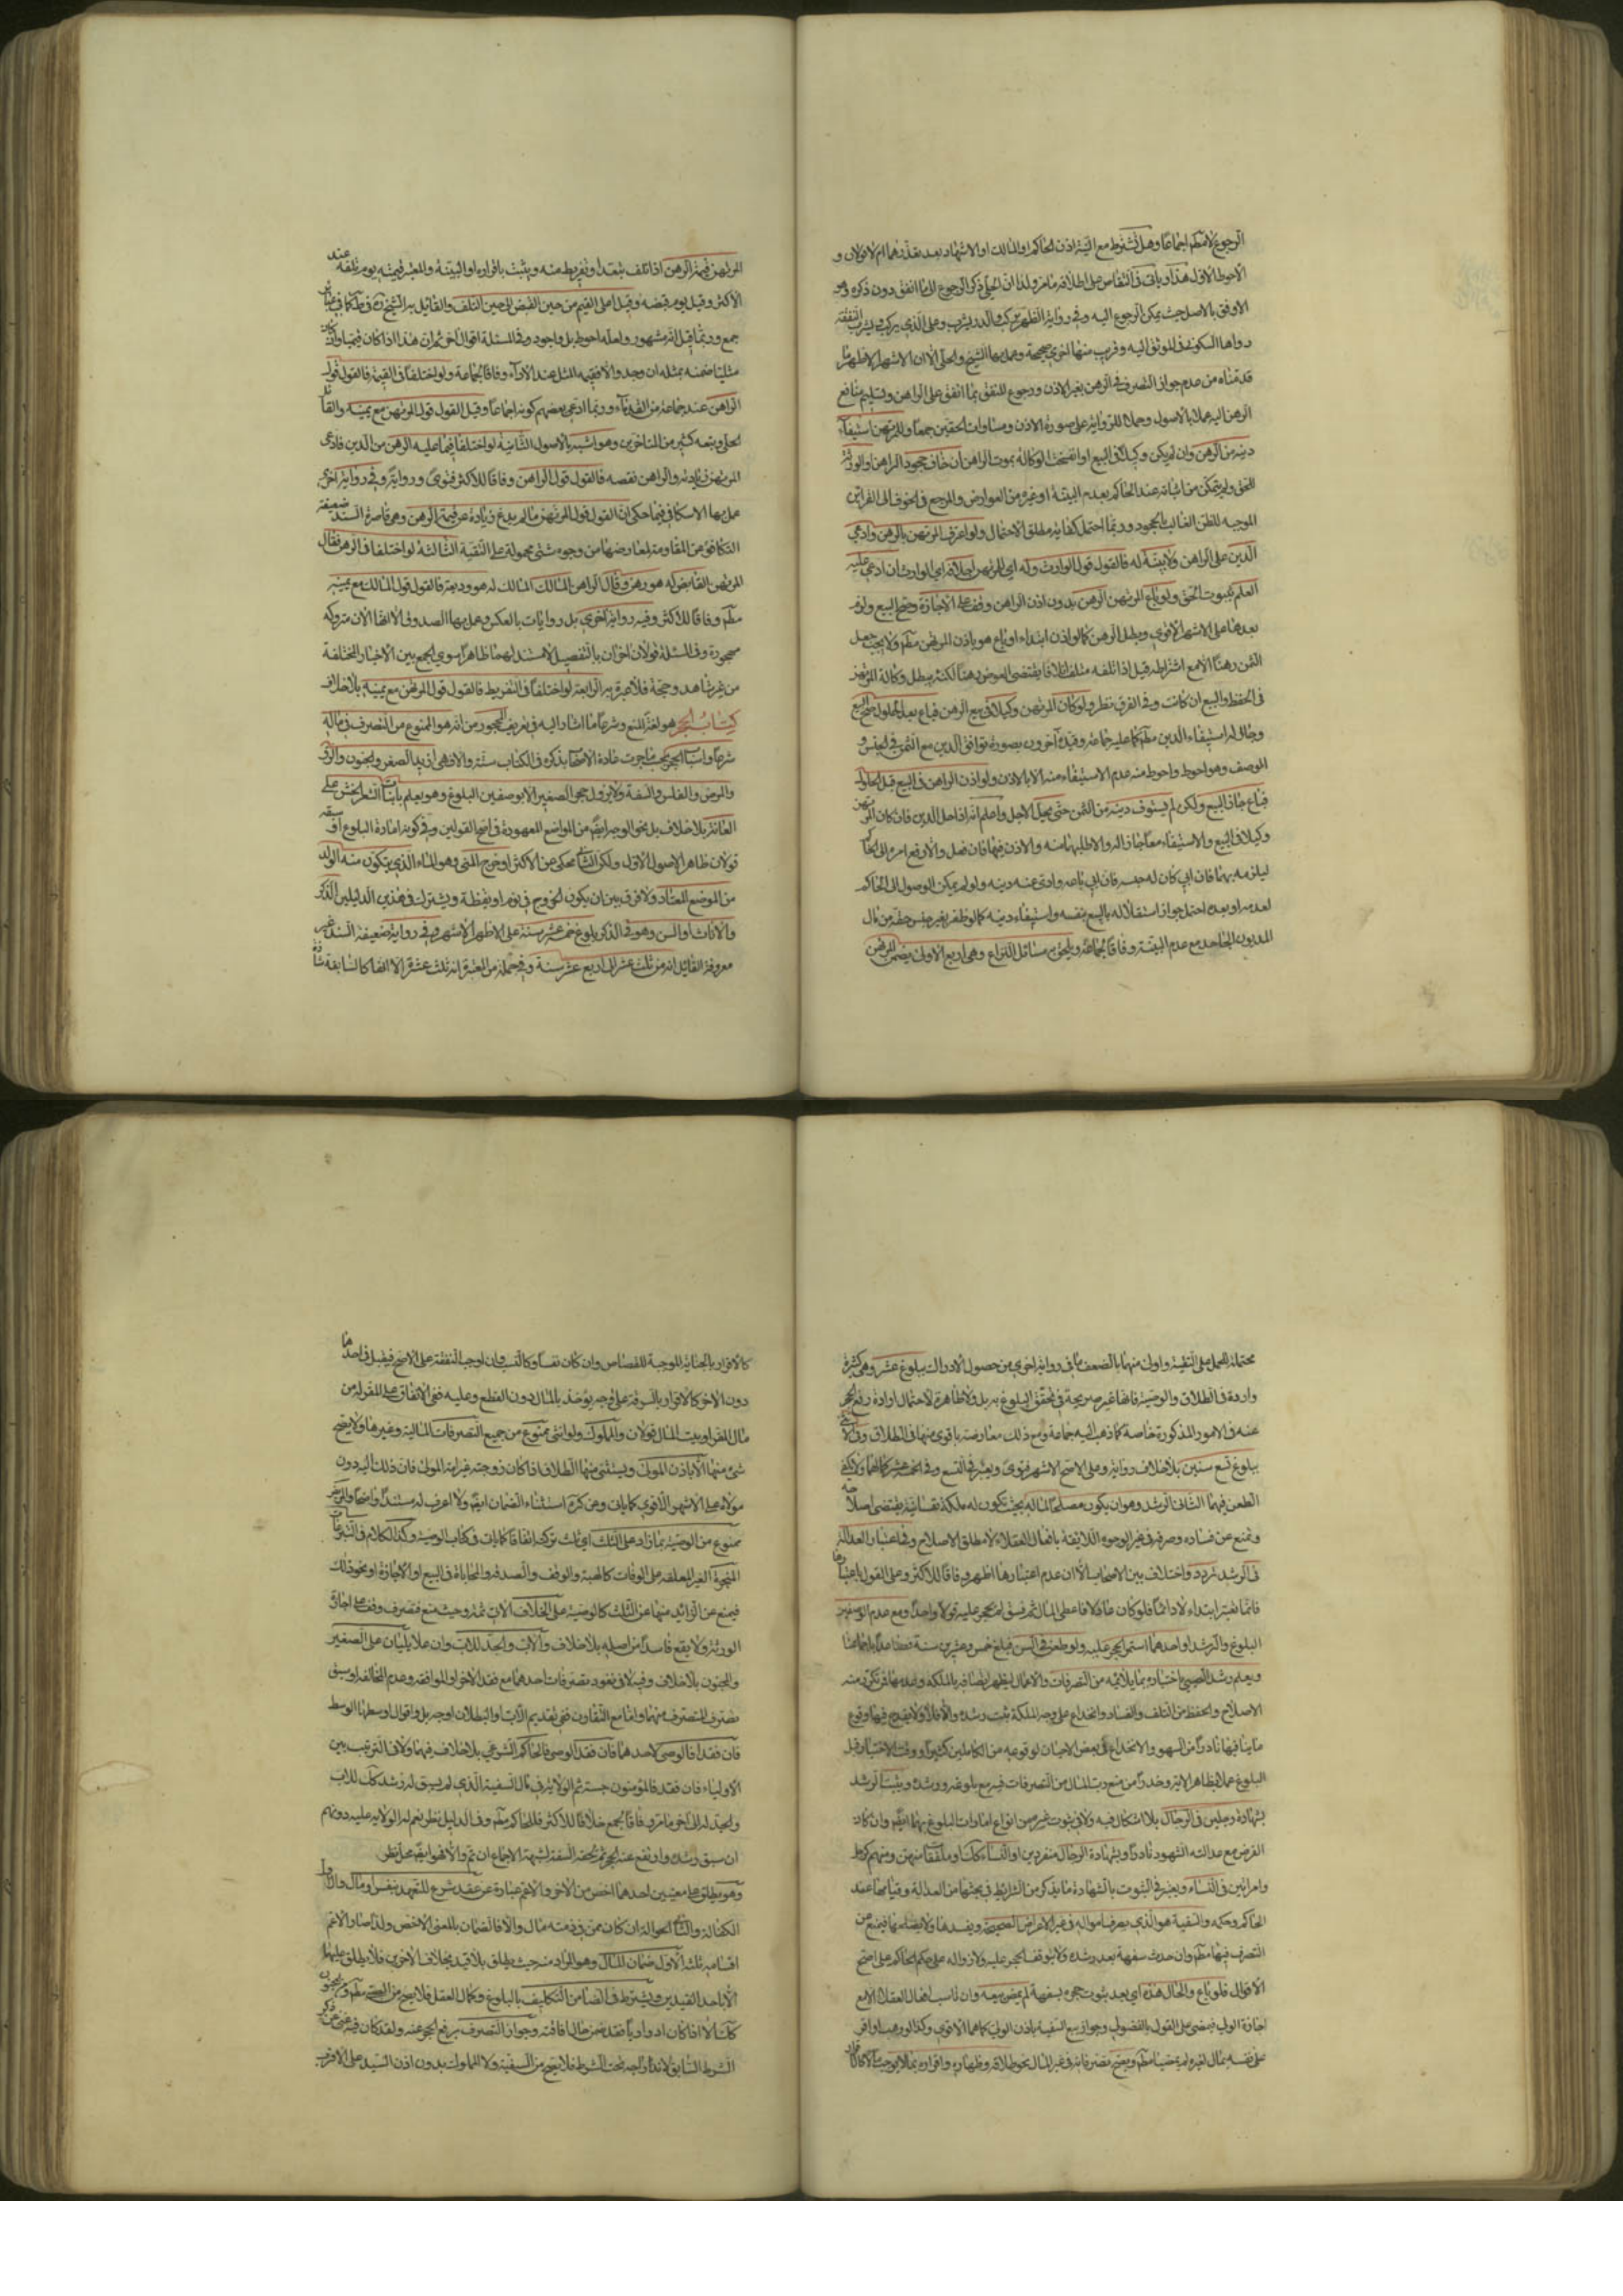 الرجوع لا مطلقا اجماعا وهل يشترط مع النية اذن الحاكم او المالك او الاشهاد بعد تعذرهما ام لا قولان و
الاحوط الاول هذا وياتى فى التقاص على اطلاقه مامر ولذا ان الحلى ذكر الرجوع لما انفق دون ذكره وهو
الاوفق بالاصل حيث يمكن الرجوع اليه وفى رواية الظهر يركب والدر يشرب وعلى الذى يركب ويشرب النفقة
رواها السكونى الموثق اليه وقريب منها اخرى صحيحة وعمل بهما الشيخ والحلى الا ان الاشهر الاظهر ما
قدمناه من عدم جواز التصرف فى الرهن بغير الاذن ورجوع المنفق بما انفق على الراهن وتسليم منافع
الرهن اليه عملا بالاصول وحملا للرواية على صورة الاذن ومساوات الحقين جمعا وللمرتهن استيفاء
دينه من الرهن وان لم يكن وكيلا فى البيع او انفسخت الوكالة بموت الراهن ان خاف جحود الراهن والورثة
للحق ولم يتمكن من اثباته عند الحاكم بعدم البينة او غيره من العوارض والمرجع فى الخوف الى القرائن
الموجبه للظن الغالب بالجحود وربما احتمل كفاية مطلق الاحتمال ولو اعترف المرتهن بالرهن وادعى
الدين على الراهن ولا بينة له فالقول قول الوارث وله اى للمرتهن احلافه اى الوارث ان ادعى عليه
العلم بثبوت الحق ولو باع المرتهن الرهن بدون اذن الراهن وقف على الاجازة وصح البيع ولو
بعدها على الاشهر الاقوى وبطل الرهن كما لو اذن ابتداء او باع هو باذن المرتهن مطلقا ولا يجب جعل
الثمن رهنا الا مع اشتراطه قيل اذا اتلفه متلف اتلافا يقتضى العوض رهنا لكن يبطل وكالة المرتهن
فى الحفظ والبيع ان كانت وفى الفرق نظر ولو كان المرتهن وكيلا فى بيع الرهن فباع بعد الحلول صح البيع
وجاز له استيفاء الدين مطلقا كما عليه جماعة وقيده آخرون بصورة توافق الدين مع الثمن فى الجنس و
الوصف وهو احوط واحوط منه عدم الاستيفاء منه الا بالاذن ولو اذن الراهن فى البيع قبل الحلول
فباع جاز البيع ولكن لم يستوف دينه من الثمن حتى يحل الاجل واعلم انه اذا حل الدين فان كان المرتهن
وكيلا فى البيع والاستيفاء معا جاز له والا طلبهما منه والاذن فيهما فان فعل والا رفع امره الى الحاكم
ليلزمه بهما فان ابى كان له حبسه فان ابى باعه وادى عنه دينه ولو لم يمكن الوصول الى الحاكم
لعدمه او بعده احتمل جواز استقلاله بالبيع بنفسه واستيفاء دينه كما لو ظفر بغير جنس حقه من مال
المديون الجاحد مع عدم البينة وفاقا لجماعة ويلحق به مسائل النزاع وهى اربع الاولى يضمن المرتهن
المرتهن قيمة الرهن اذا تلف بتعد او تفريط منه ويثبت باقراره او البينة والمعتبر قيمته يوم تلفه عند
الاكثر وقيل يوم قبضه وقيل اعلى القيم من حين القبض الى حين التلف والقائل به الشيخ
جمع وربما قيل انه مشهور ولعله احوط بل واجود وفى المسئلة اقوال اخر ثم ان هذا اذا كان قيميا وان كان
مثليا ضمنه بمثله ان وجد والا فقيمه المثل عند الاداء وفاقا لجماعة ولو اختلفا فى القيمة فالقول قول
الراهن عند جماعة من القدماء وربما ادعى بعضهم كونه اجماعا وقيل القول قول المرتهن مع يمينه والقائل
الحلى وتبعه كثير من المتاخرين وهو اشبه بالاصول الثانية لو اختلفا فيما عليه الرهن من الدين فادعى
المرتهن زيادته والراهن نقصه فالقول قول الراهن وفاقا للاكثر فتوى ورواية وفى رواية اخرى
عمل بها الاسكافى فيما حكى ان القول قول المرتهن مالم يدع زيادة عن قيمة الرهن وهى قاصرة السند ضعيفة
التكافؤ عن المقاومة لمعارضها من وجوه شتى محمولة على التقية الثالثة لو اختلفا فى الرهن فقال
المرتهن القابض له هو رهن وقال الراهن المالك له هو وديعة فالقول قول المالك مع يمينه
مطلقا وفاقا للاكثر وفيه رواية اخرى بل روايات بالعكس وعمل بها الصدوق الا انها الآن متروكه
مهجورة وفى المسئلة قولان اخران بالتفصيل لا مستند لهما ظاهرا سوى الجمع بين الاخبار المختلفة
من غير شاهد وحجة فلا عبرة به الرابعة لو اختلفا فى التفريط فالقول قول المرتهن مع يمينه بلا خلاف
كتاب الحجر هو لغة المنع وشرعا ما اشار اليه فى تعريف المحجور من انه هو الممنوع من التصرف فى ماله
شرعا واسباب الحجر بحسب ماجرت عادة الاصحاب بذكره فى الكتاب ستة والا فهى ازيد الصغر والجنون والرق
والمرض والفلس والسفه ولا يزول حجر الصغير الا بوصفين البلوغ وهو يعلم بانبات الشعر الخشن على
العانة بلا خلاف بل نحو الوجه ايضا من المواضع المعهودة فى اصح القولين وفى كونه امارة البلوغ او سبقه
قولان ظاهر الاصول الاول ولكن الثانى محكى عن الاكثر او خروج المنى وهو الماء الذى يتكون منه الولد
من الموضع المعتاد ولا فرق بين ان يكون الخروج فى نوم او يقظة ويشترك فى هذين الدليلين الذكر
والاناث او السن وهو فى الذكر بلوغ خمسة عشر سنة على الاظهر الاشهر وفى رواية ضعيفة السند غير
معروفة القائل انه من ثلث عشر الى اربع عشر سنة وفى جملة من المعتبرة انه ثلث عشرة الا انها كالسابقة شاذة
محتملة للحمل على التقية واولى منهما بالضعف ما فى رواية اخرى من حصول الادراك ببلوغ عشر وهى كثيرة
واردة فى الطلاق والوصية فانها غير صريحة فى تحقق البلوغ به بل ولا ظاهرة لاحتمال ارادة رفع الحجر
عنه فى الامور المذكورة خاصة كما ذهب اليه جماعة ومع ذلك معارضة باقوى منها فى الطلاق وفى الانثى
ببلوغ تسع سنين بلا خلاف رواية وعلى الاصح الاشهر فتوى ويعتبر فى التسع وفى الخمسة عشر كمالهما ولا يكفى
الطعن فيهما الثانى الرشد وهو ان يكون مصلحا لماله بحيث تكون له ملكة نفسانية يقتضى اصلاحه
وتمنع عن فساده وصرفه فى غير الوجوه اللائقة بافعال العقلاء لا مطلق الاصلاح وفى اعتبار العدالة
فى الرشد تردد واختلاف بين الاصحاب الا ان عدم اعتبارها اظهر وفاقا للاكثر وعلى القول باعتبارها
فانما تعتبر ابتداء لا دائما فلو كان عادلا فاعطى المال ثم فسق لم يحجر عليه قولا واحدا ومع عدم الوصفين
البلوغ والرشد او احدهما استمر الحجر عليه ولو طعن فى السن فبلغ خمس وعشرين سنة فصاعدا باجماعنا
ويعلم رشد الصبى باختباره بما يلائمه من التصرفات والاعمال ليظهر اتصافه بالملكه وعدمها فمن تكررت منه
الاصلاح والحفظ من التلف والفساد والانخداع على وجه الملكة ثبت رشده والا فلا ولا يقدح فيها وقوع
ما ينافيها نادرا من السهو والانخداع فى بعض الاحيان لوقوعه من الكاملين كثيرا ووقت الاختبار قبل
البلوغ عملا بظاهر الاية وحذرا من منع رب المال من التصرفات فيه مع بلوغه ورشده ويثبت الرشد
بشهادة رجلين فى الرجال بلا اشكال فيه ولا فى ثبوت غيره من انواع امارات البلوغ بهما ايضا وان كان
الفرض مع عدالة الشهود نادرا وبشهادة الرجال منفردين او النساء كذلك او ملفقا منهن ومنهم كرجل
وامراتين فى النساء ويعتبر فى الثبوت بالشهادة ما يذكر من الشرائط فى بحثها من العدالة وقيامها عند
الحاكم وحكمه والسفيه هو الذى يصرف امواله فى غير الاغراض الصحيحة ويفسدها ولا يصلحها فيمنع من
التصرف فيها مطلقا وان حدث سفهه بعد رشده ولا يتوقف الحجر عليه ولا زواله على حكم الحاكم على اصح
الاقوال فلو باع والحال هذه اى بعد ثبوت حجره بسفهه لم يمض بيعه وان ناسب افعال العقلاء الا مع
اجازة الولى فيمضى على القول بالفضولى وجواز بيع السفيه باذن الولى كما هما الاقوى وكذا لو وهب او اقر
على نفسه بمال لغيره لم يمضيا مطلقا ويصح تصرفاته فى غير المال نحو طلاقه وظهاره واقراره بما لا يوجب مالا
كالاقرار بالجناية الموجبة للقصاص وان كان نفسا وكالنسب وان اوجب النفقة على الاصح فيقبل فى احدهما
دون الاخر كالاقرار بالسرقة على وجه يؤخذ بالمال دون القطع وعليه ففى الانفاق على المقر له من
مال المقر او بيت المال قولان والمملوك ولو انثى ممنوع من جميع التصرفات المالية وغيرها ولا يصح
شئ منها الا باذن المولى ويستثنى منها الطلاق اذا كان زوجته غير امة المولى فان ذلك اليه دون
مولاه على الاشهر الاقوى كما ياتى وعن كره استثناء الضمان ايضا ولا اعرف له مستندا واضحا والمريض
ممنوع من الوصية بما زاد على الثلث اى ثلث تركته اتفاقا كما ياتى فى كتاب الوصية وكذا الكلام فى التبرعات
المنجزة الغير المعلقه على الوفات كالهبة والوقف والصدقه والمحاباة فى البيع او الاجارة او نحو ذلك
فيمنع عن الزائد منها عن الثلث كالوصية على الخلاف الاتى ثمة وحيث منع فتصرف وقف على اجازة
الورثة ولا يقع فاسدا من اصله بلا خلاف والاب والجد للاب وان علا يليان على الصغير
والمجنون بلا خلاف وفيه لا فى نفوذ تصرفات احدهما مع فقد الاخر او الموافقه وعدم المخالفه او سبق
تصرف المتصرف منهما واما مع التقارن ففى تقديم الاب او البطلان اوجه بل واقوال اوسطها الوسط
فان فقدا فالوصى لاحدهما فان فقد الوصى فالحاكم الشرعى بلا خلاف فيهما ولا فى الترتيب بين
الاولياء فان فقد فالمؤمنون حسبة ثم الولاية فى مال السفيه الذى لم يسبق له رشد كذلك للاب
والجد له الى آخر مامر وفاقا لجمع خلافا للاكثر فللحاكم مطلقا وفى الدليل نظر نعم له الولاية عليه دونهم
ان سبق رشده وارتفع عنه الحجر ثم لحقه السفه لشبهة الاجماع ان تم والا فهو ايضا محل نظر
وهو يطلق على معنيين احدهما اخص من الاخر والاعم عبارة عن عقد شرع للتعهد بنفس او مال والاول
الكفالة والثانى الحوالة ان كان ممن فى ذمته مال والا فالضمان بالمعنى الاخص ولذا صار الاعم
اقسامه ثلثة الاول ضمان المال وهو المراد منه حيث يطلق بلا قيد بخلاف الاخرين فلا يطلق عليهما
الا باحد القيدين ويشترط فى الضامن التكليف بالبلوغ وكمال العقل فلا يصح من الصبى مطلقا ومن المجنون
كذلك الا اذا كان ادواريا فقد ضمن حال افاقته وجواز التصرف برفع الحجر عنه ولقد كان فيه غنى عن ذكر
الشرط السابق لاندراجه تحت الشرط فلا يصح من السفيه ولا المملوك بدون اذن السيد على الاقرب